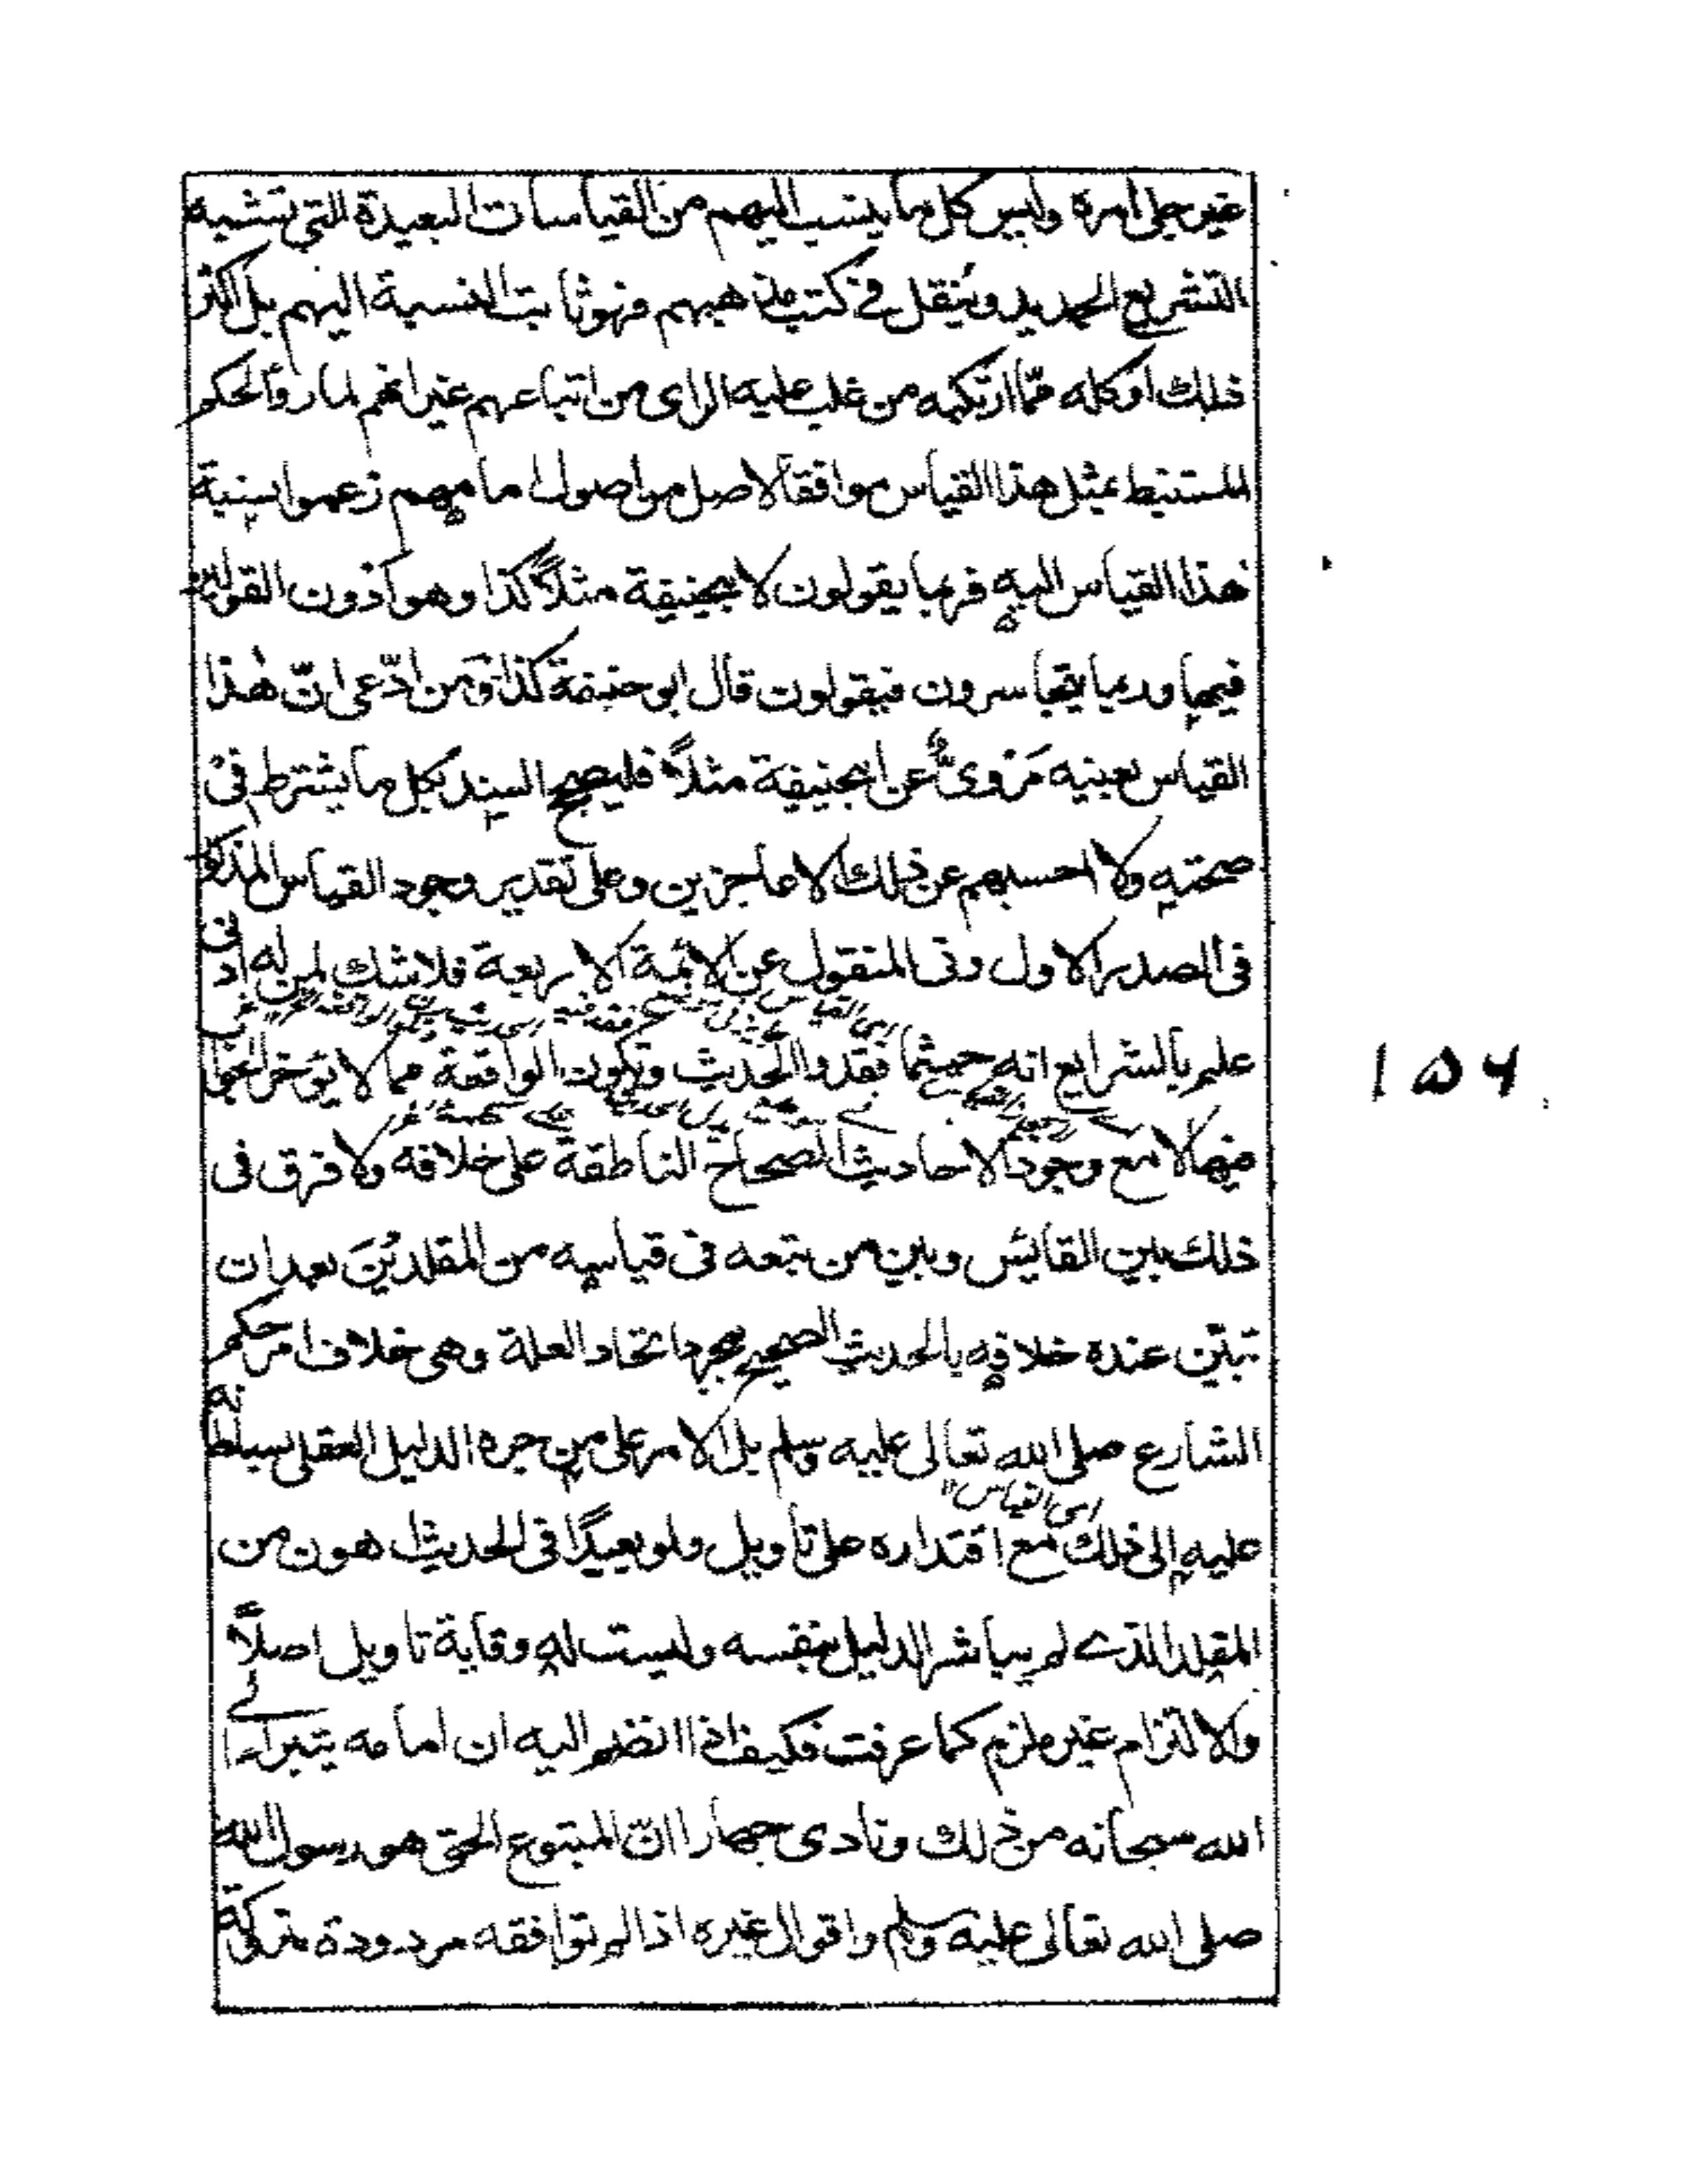 غير جلي امره وليس كل ما ينسب اليهم من القياسات البعيدة التي تشبه
التشريع الجديد وينقل في كتب مذاهبهم فهو ثابت النسبة اليهم بل اكثر
ذلك او كله مما ارتكبه من غلب عليه الراى من اتباعهم غير انهم لما رواالحكم
المستنبط بمثل هذا القياس موافقا لاصل من اصول امامهم زعموا نسبة
هذا القياس اليه فربما يقولون لابيحنيفة مثلاً كذا وهو ادون القولين
فيها وربما يتجاسرون فيقولون قال ابو حنيفة كذا ومن ادّعى انّ هٰذا
القياس بعينه مَرْوىٌّ عن ابيحنيفة مثلاً فليصحح السند بكل ما يشترط فىْ
صحته ولا احسبهم عن ذلك الا عاجزين وعلى تقدير وجود القياس المذكور
فى الصدر الاول وفى المنقول عن الائمة الاربعة فلاشك لمن له ادنى
علم بالشرايع انه حيثما فقدوا الحديث وتكون الواقعة مما لا يؤخر الجواب
فيها لا مع وجود الاحاديث الصحاح الناطقة على خلافه ولا فرق فى
ذلك بين القايس وبين من تبعه فى قياسه من المقلدين بعد ان
تبيّن عنده خلافه بالحديث الصحيح بمجرد اتحاد العلة وهى خلاف امر حكم
الشارع صلى الله تعالى عليه وسلم بل الامر على من جره الدليل العقلى بسلطانه
اى القياس
عليه الى ذلك مع اقتداره على تأويل ولو بعيدًا فى الحديث اهون من
المقلد الذے لم يباشر الدليل بنفسه وليست له وقاية تاويل اصلاً
والالتزام غير ملزم كما عرفت فكيف اذا انضم اليه ان امامه يتبرأ الى
الله سبحانه من ذلك ونادى جهارا انّ المتبوع الحق هو رسول الله
صلى الله تعالى عليه وسلم واقوال غيره اذا لم توافقه مردودة متروكة
١٥٦